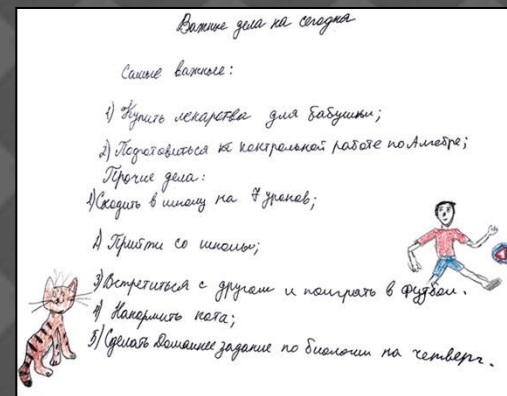 Важные дела на сегодня
Самые важные:
1) Купить лекарства для бабушки;
2) Подготовиться к контрольной работе по Алгебре;
Прочие дела:
1) Сходить в школу на 7 уроков;
2) Прийти со школы;
3) Встретиться с другом и поиграть в футбол.
4) Накормить кота;
5) Сделать Домашнее задание по биологии на четверг.